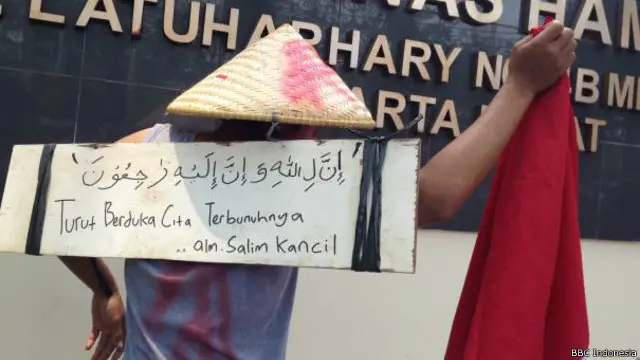 NAS HAM
LATUHARHARY No B ME
ARTA AT
إِنَّ لِلّٰهِ وَ إِنَّ إِلَيْهِ رَاجِعُوْنَ
Turut Berduka Cita Terbunuhnya
.. alm. Salim Kancil
BBC Indonesia